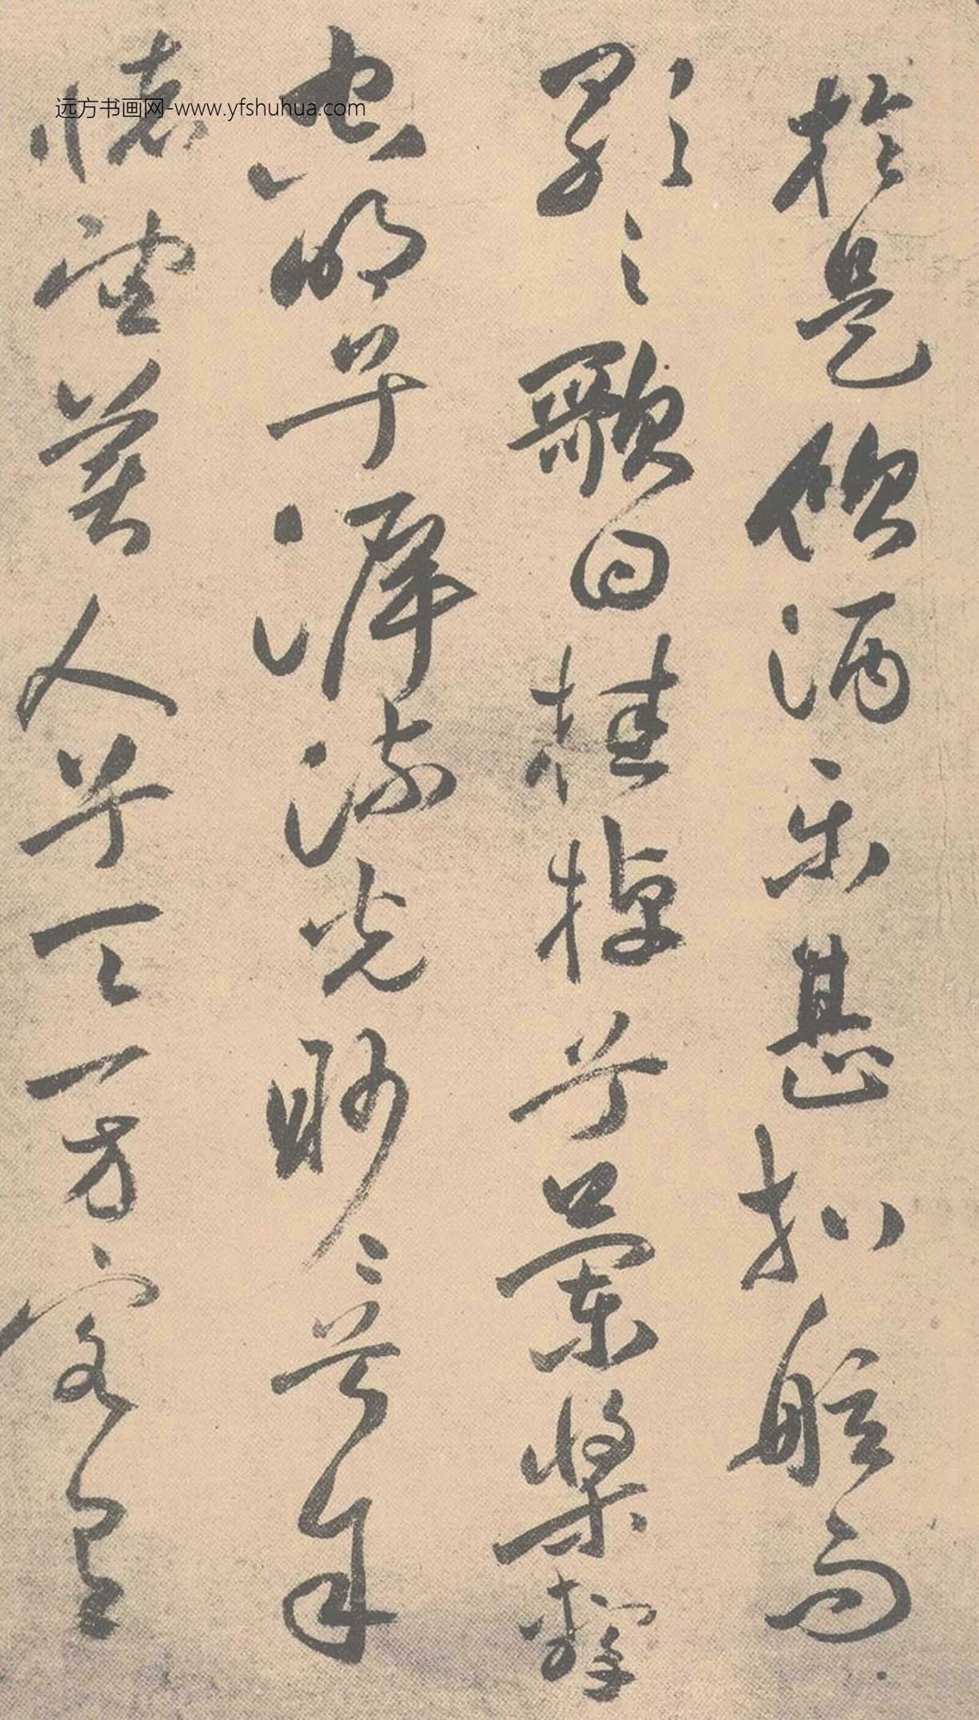 於是飲酒樂甚扣舷而
歌之歌曰桂棹兮蘭槳擊
空明兮泝流光眇〻兮予
懷望美人兮天一方客有
远方书画网-www.yfshuhua.com